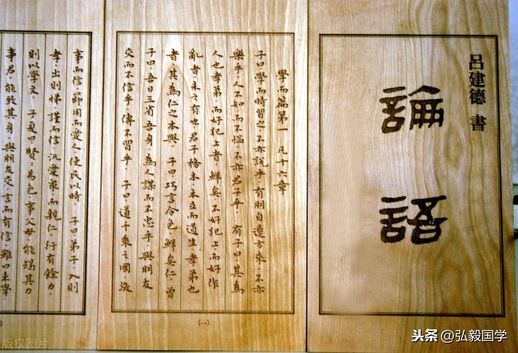 呂建德 書
論語
學而篇第一 凡十六章
子曰學而時習之不亦說乎 有朋自遠方來不亦
樂乎 人不知而不慍 不亦君子乎 有子曰其為
人也孝弟而好犯上者鮮矣 不好犯上而好作
亂者未之有也 君子務本本立而道生 孝弟也
者其為仁之本與 子曰巧言令色鮮矣仁 曾
子曰吾日三省吾身為人謀而不忠乎與朋友
交而不信乎 傳不習乎 子曰道千乘之國敬
(一)
事而信節用而愛人使民以時 子曰弟子入則
孝出則悌謹而信汎愛眾而親仁行有餘力
則以學文 子夏曰賢々易色事父母能竭其力
事君能致其身與朋友交言而有信雖曰未學
版权图片
头条 @弘毅国学